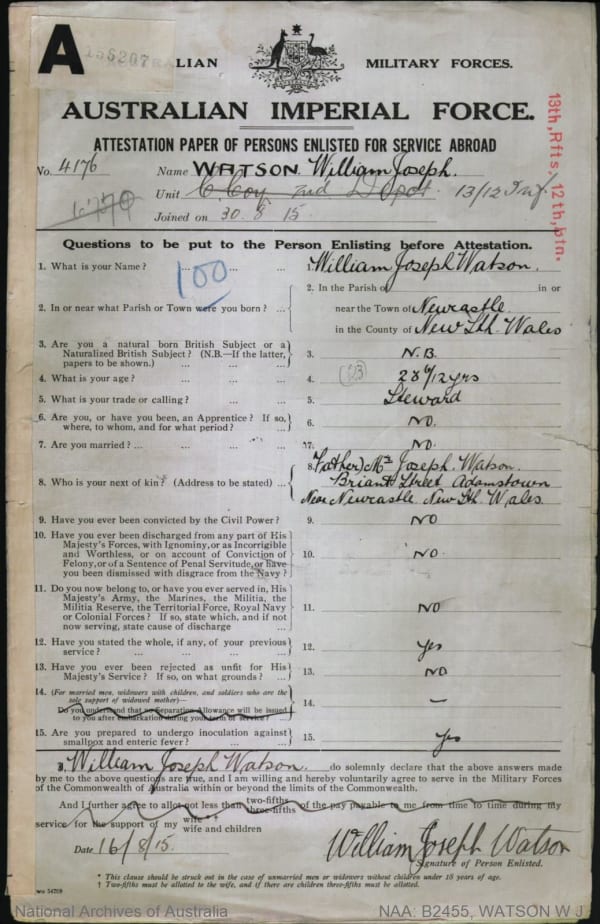 A
136207
LIAN MILITARY FORCES.
AUSTRALIAN IMPERIAL FORCE.
ATTESTATION PAPER OF PERSONS ENLISTED FOR SERVICE ABROAD
13th, Rfts, 12th, btn.
No. 4176 Name WATSON. William Joseph.
Unit C. Coy 2nd Depot. 13/12 Inf.
Joined on 30.8.15.
Questions to be put to the Person Enlisting before Attestation.
100
1. What is your Name? ... ... ... 1. William Joseph Watson.
2. In or near what Parish or Town were you born? ... 2. In the Parish of in or
near the Town of Newcastle
in the County of New Sth. Wales
3. Are you a natural born British Subject or a
Naturalized British Subject? (N.B.—If the latter,
papers to be shown.) ... ... ... 3. N.B.
4. What is your age? ... ... ... 4. (23) 28 6/12 yrs
5. What is your trade or calling? ... ... 5. Steward
6. Are you, or have you been, an Apprentice? If so,
where, to whom, and for what period? ... 6. NO.
7. Are you married? ... ... ... 7. NO.
8. Who is your next of kin? (Address to be stated) ... 8. (Father) Mr. Joseph Watson.
Briant Street Adamstown
Near Newcastle New Sth. Wales
9. Have you ever been convicted by the Civil Power? 9. NO
10. Have you ever been discharged from any part of His
Majesty's Forces, with Ignominy, or as Incorrigible
and Worthless, or on account of Conviction of
Felony, or of a Sentence of Penal Servitude, or have
you been dismissed with disgrace from the Navy? 10. NO.
11. Do you now belong to, or have you ever served in, His
Majesty's Army, the Marines, the Militia, the
Militia Reserve, the Territorial Force, Royal Navy
or Colonial Forces? If so, state which, and if not
now serving, state cause of discharge ... 11. NO
12. Have you stated the whole, if any, of your previous
service? ... ... ... 12. Yes
13. Have you ever been rejected as unfit for His
Majesty's Service? If so, on what grounds? ... 13. NO
14. (For married men, widowers with children, and soldiers who are the
sole support of widowed mother)—
Do you understand that no Separation Allowance will be issued
to you after embarkation during your term of service? 14. —
15. Are you prepared to undergo inoculation against
smallpox and enteric fever? ... ... 15. Yes
I, William Joseph Watson. do solemnly declare that the above answers made
by me to the above questions are true, and I am willing and hereby voluntarily agree to serve in the Military Forces
of the Commonwealth of Australia within or beyond the limits of the Commonwealth.
And I further agree to allot not less than two-fifths three-fifths of the pay payable to me from time to time during my
service for the support of my wife wife and children
Date 16/8/15. William Joseph Watson
Signature of Person Enlisted.
* This clause should be struck out in the case of unmarried men or widowers without children under 18 years of age.
† Two-fifths must be allotted to the wife, and if there are children three-fifths must be allotted.
National Archives of Australia NAA: B2455, WATSON W J